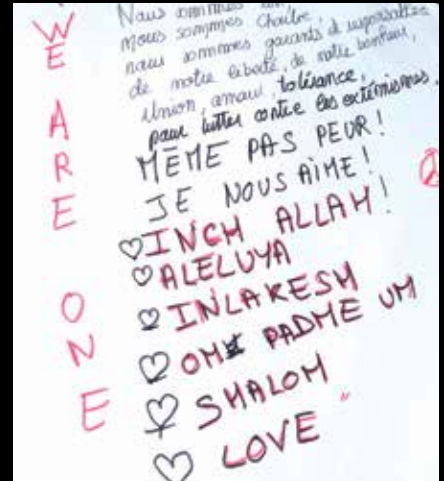 WE ARE ONE
Nous sommes
nous sommes Charlie,
nous sommes garants &
de notre liberté, de notre bonheur,
Union, amour, tolérance,
pour lutter contre les extrémismes,
MÊME PAS PEUR!
JE NOUS AIME!
♡ INCH ALLAH!
♡ ALELUYA
♡ INLAKESH
♡ OM PADME UM
♡ SHALOM
♡ LOVE